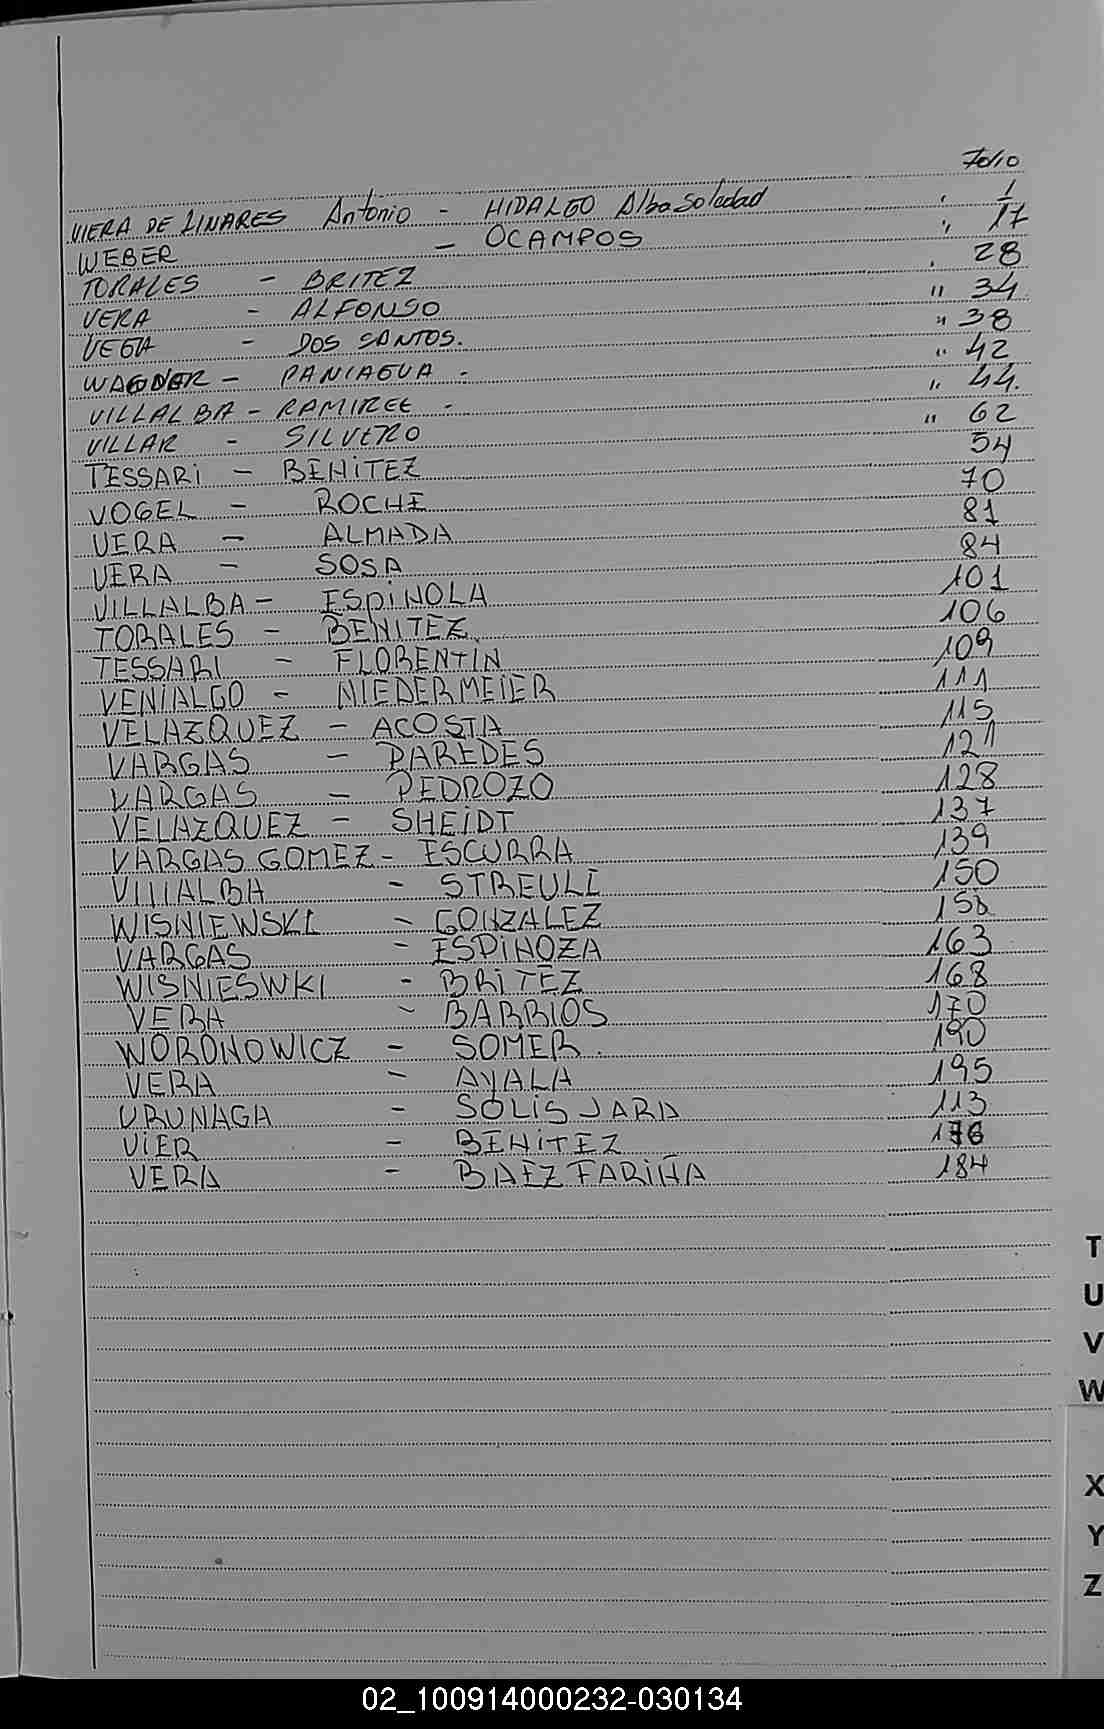 Folio
VIERA DE LINARES Antonio - HIDALGO Alba Soledad " 1
WEBER - OCAMPOS " 17
TORALES - BRITEZ " 28
VERA - ALFONSO " 34
VEGA - DOS SANTOS. " 38
WAGNER - PANIAGUA - " 42
VILLALBA - RAMIREZ - " 44.
VILLAR - SILVERO " 62
TESSARI - BENITEZ 54
VOGEL - ROCHE 70
VERA - ALMADA 81
VERA - SOSA 84
VILLALBA - ESPINOLA 101
TORALES - BENITEZ 106
TESSARI - FLORENTIN 109
VENIALGO - NIEDERMEIER 111
VELAZQUEZ - ACOSTA 115
VARGAS - PAREDES 121
VARGAS - PEDROZO 128
VELAZQUEZ - SHEIDT 137
VARGAS GOMEZ - ESCURRA 139
VILLALBA - STREULI 150
WISNIEWSKI - GONZALEZ 158
VARGAS - ESPINOZA 163
WISNIESWKI - BRITEZ 168
VERA - BARRIOS 170
WORONOWICZ - SOMER. 190
VERA - AYALA 195
URUNAGA - SOLIS JARA 113
VIER - BENITEZ 176
VERA - BAEZ FARIÑA 184
T
U
V
W
X
Y
Z
02_100914000232-030134